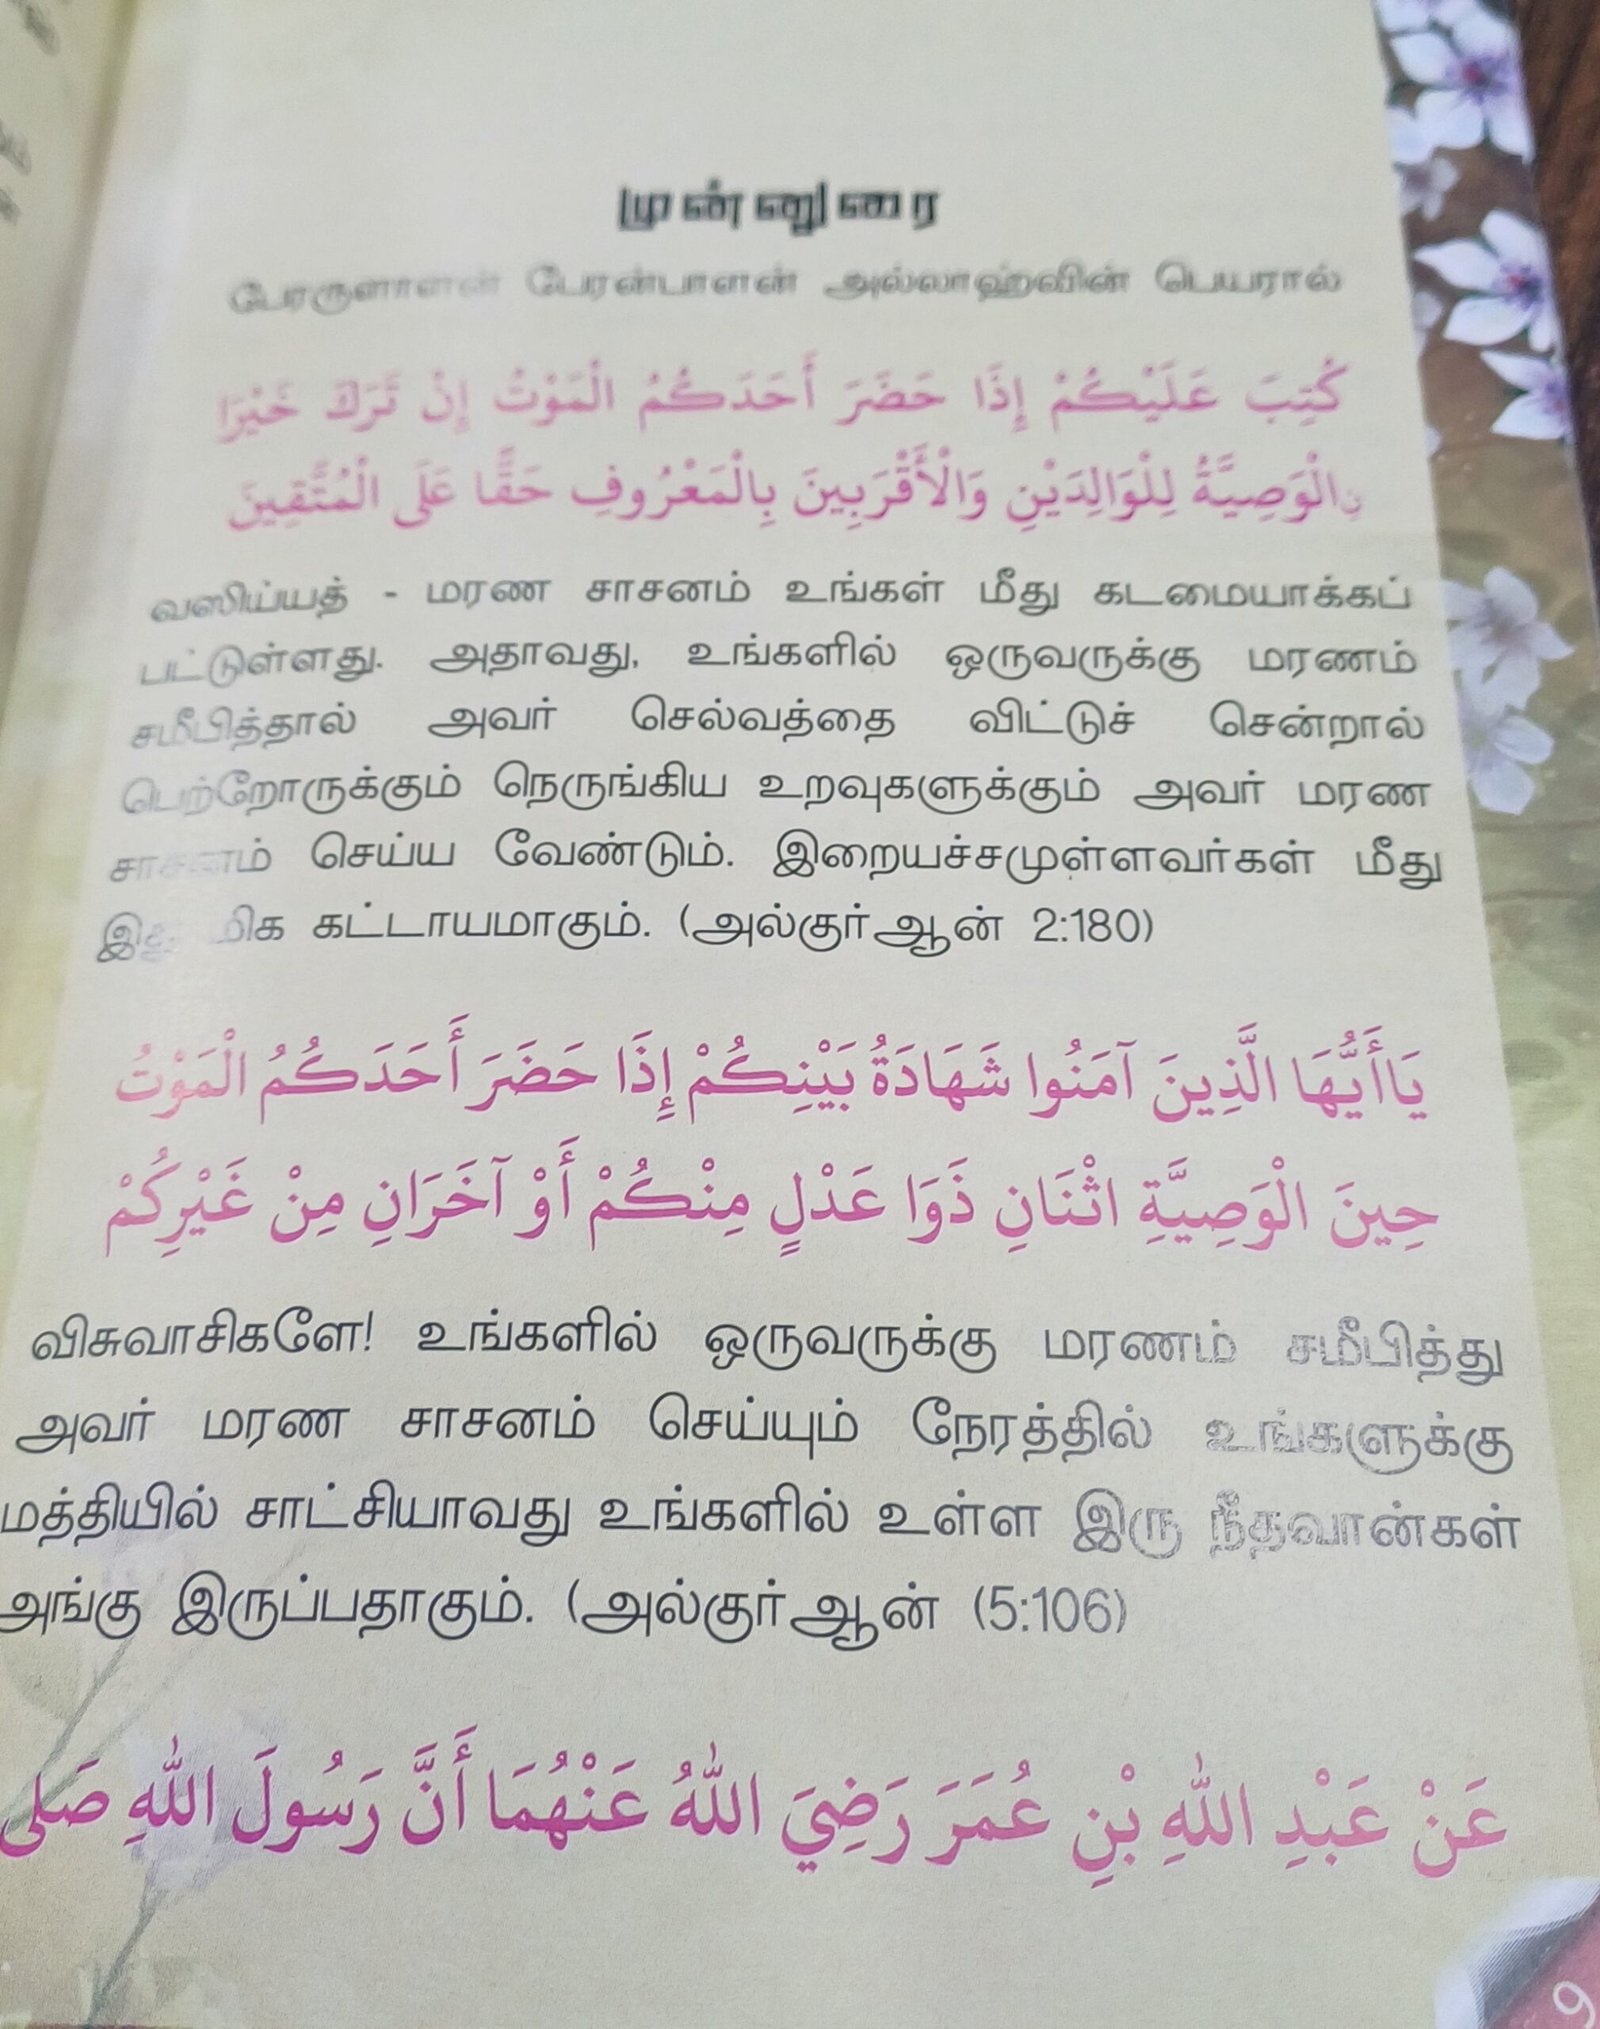 முன்னுரை
பேரருளாளன் பேரன்பாளன் அல்லாஹ்வின் பெயரால்
كُتِبَ عَلَيْكُمْ إِذَا حَضَرَ أَحَدَكُمُ الْمَوْتُ إِنْ تَرَكَ خَيْرَا
نِالْوَصِيَّةُ لِلْوَالِدَيْنِ وَالْأَقْرَبِينَ بِالْمَعْرُوفِ حَقًّا عَلَى الْمُتَّقِينَ
வஸிய்யத் - மரண சாசனம் உங்கள் மீது கடமையாக்கப்
பட்டுள்ளது. அதாவது, உங்களில் ஒருவருக்கு மரணம்
சமீபித்தால் அவர் செல்வத்தை விட்டுச் சென்றால்
பெற்றோருக்கும் நெருங்கிய உறவுகளுக்கும் அவர் மரண
சாசனம் செய்ய வேண்டும். இறையச்சமுள்ளவர்கள் மீது
இது மிக கட்டாயமாகும். (அல்குர்ஆன் 2:180)
يَاأَيُّهَا الَّذِينَ آمَنُوا شَهَادَةُ بَيْنِكُمْ إِذَا حَضَرَ أَحَدَكُمُ الْمَوْتُ
حِينَ الْوَصِيَّةِ اثْنَانِ ذَوَا عَدْلٍ مِنْكُمْ أَوْ آخَرَانِ مِنْ غَيْرِكُمْ
விசுவாசிகளே! உங்களில் ஒருவருக்கு மரணம் சமீபித்து
அவர் மரண சாசனம் செய்யும் நேரத்தில் உங்களுக்கு
மத்தியில் சாட்சியாவது உங்களில் உள்ள இரு நீதவான்கள்
அங்கு இருப்பதாகும். (அல்குர்ஆன் (5:106)
عَنْ عَبْدِ اللهِ بْنِ عُمَرَ رَضِيَ اللهُ عَنْهُمَا أَنَّ رَسُولَ اللهِ صَلى